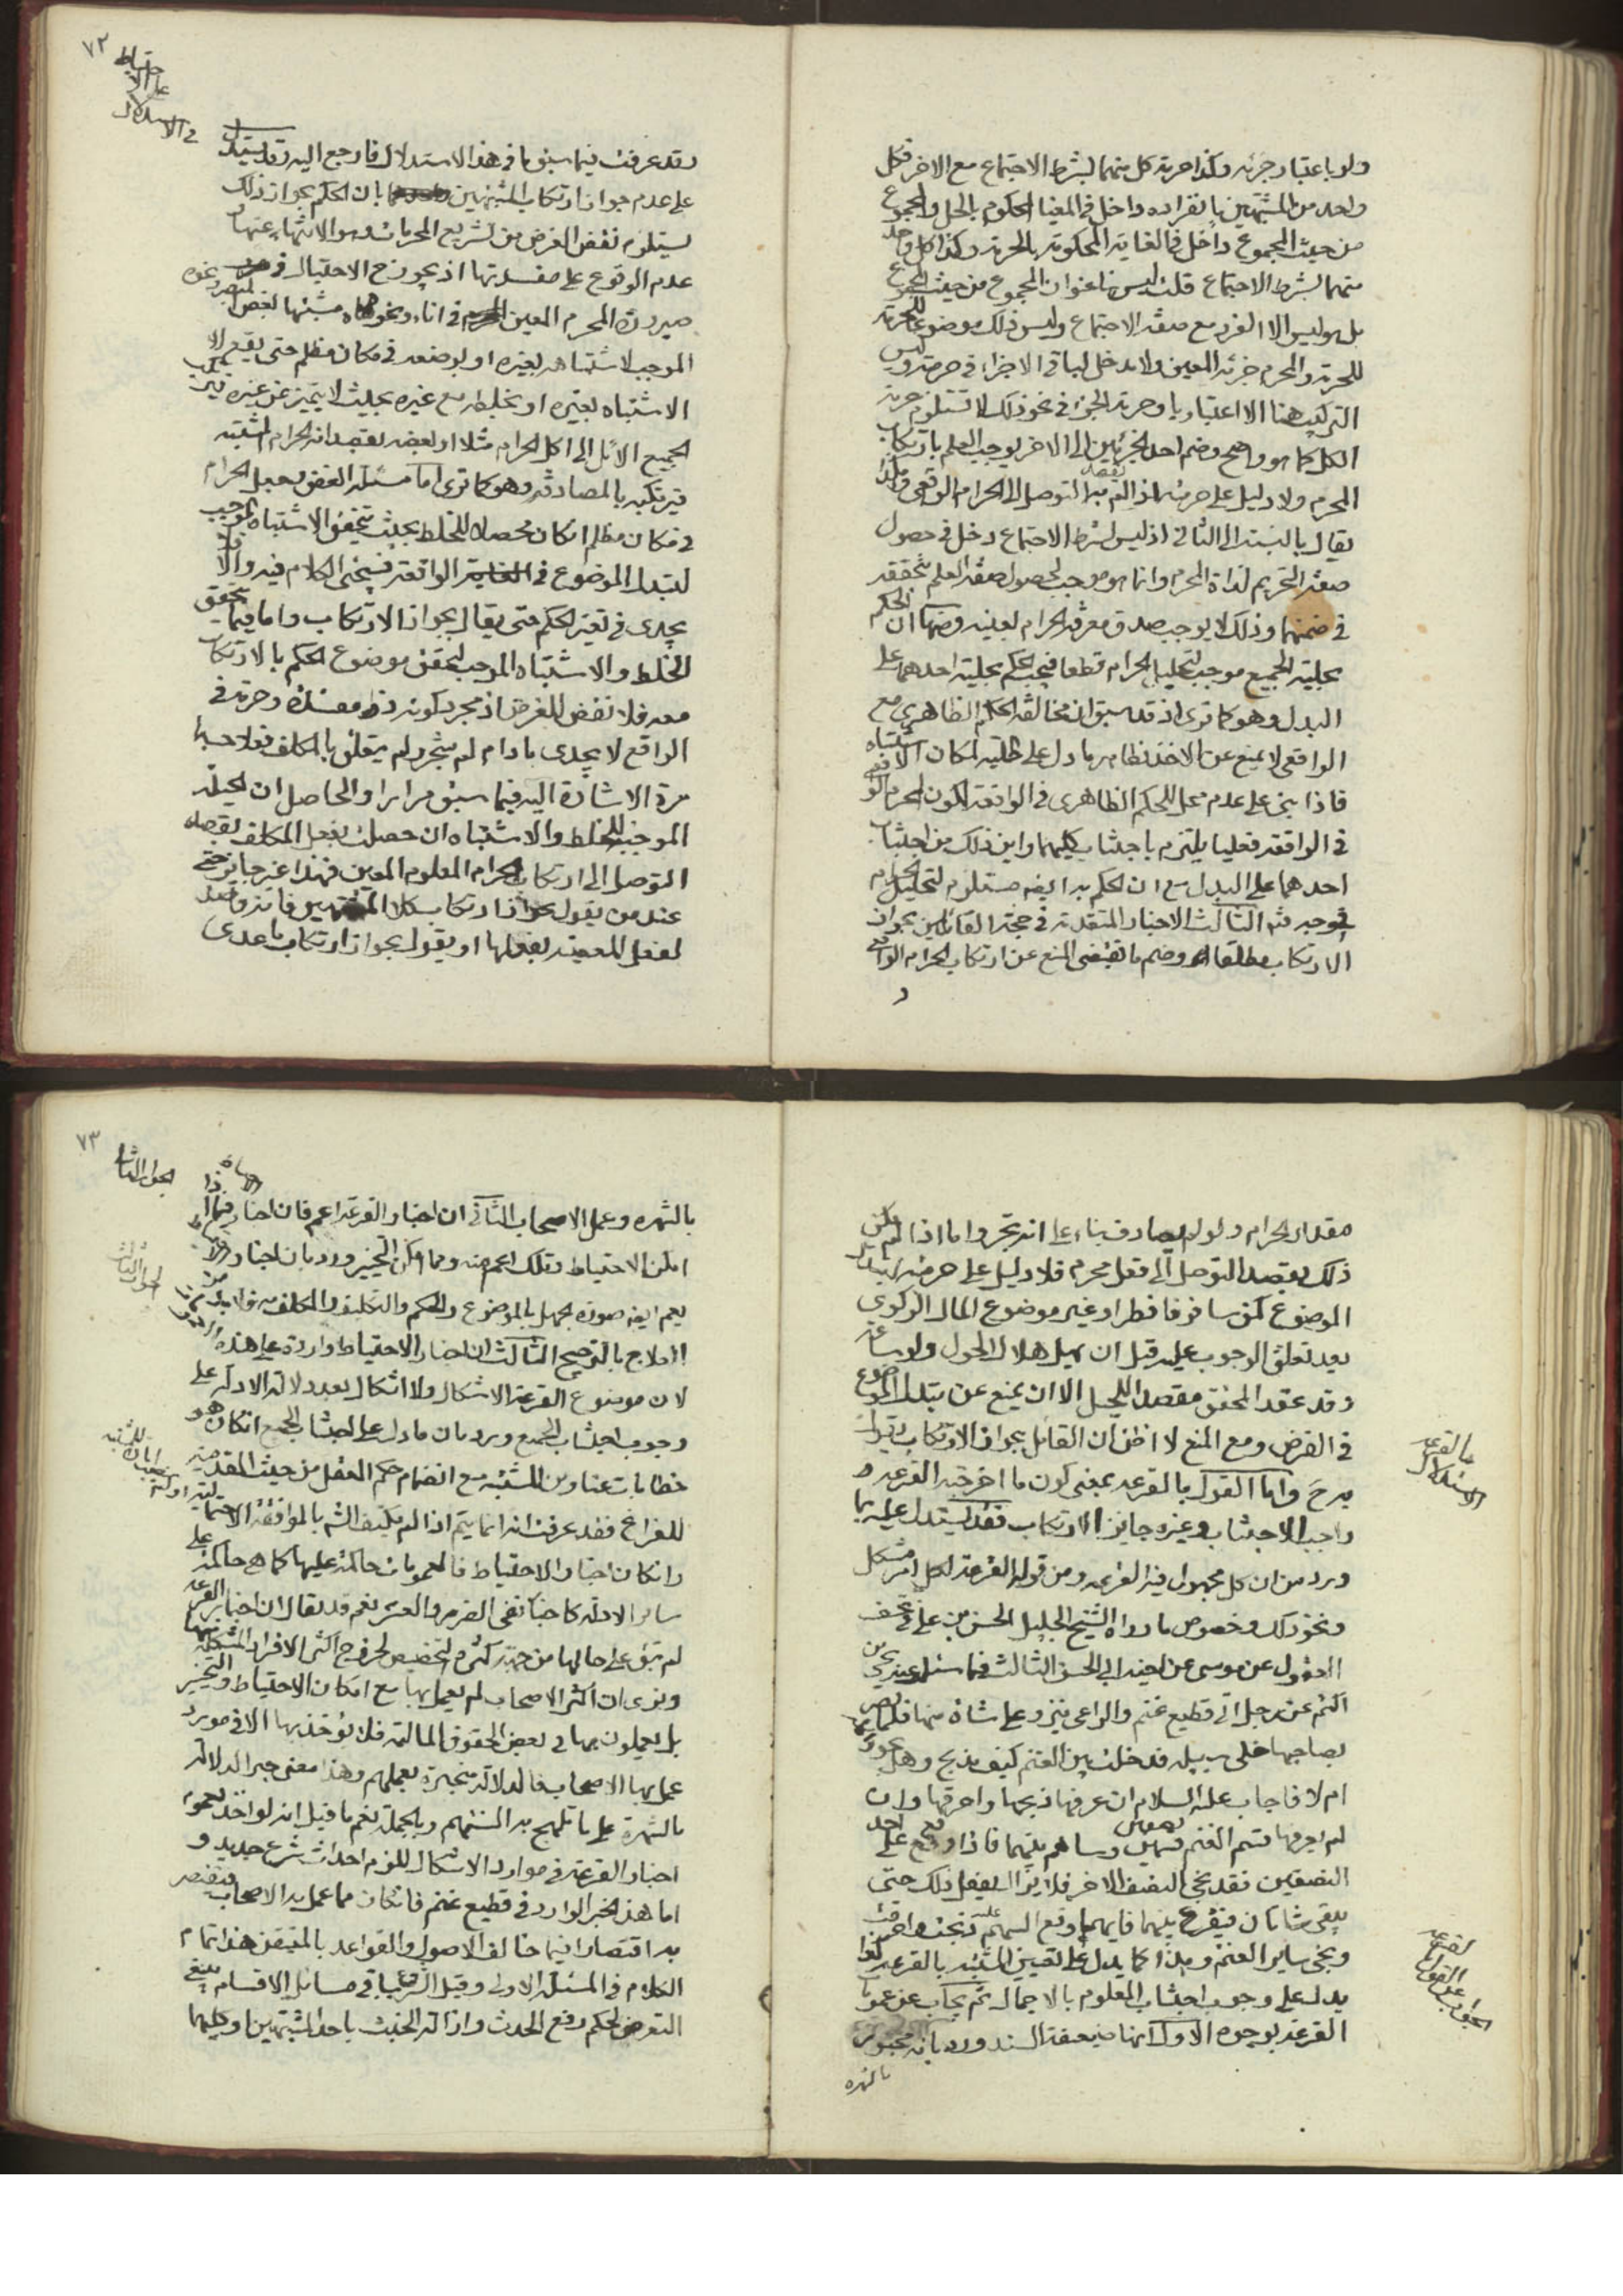 ولو باعتبار جزئه وكذا حرمة كل منهما بشرط الاجتماع مع الاخر فكل
واحد من المشتبهين بانفراده داخل في المغيا المحكوم بالحل والمجموع
من حيث المجموع داخل في الغاية المحكومة بالحرمة وكذا كل واحد
منهما بشرط الاجتماع قلت ليس هنا عنوان المجموع من حيث المجموع
بل هو ليس الا الفرد مع صفة الاجتماع وليس ذلك موضوعا للحرمة
للحرمة والمحرم جزئه المعين ولا مدخل لباقي الاجزاء في حرمته وليس
التركيب هنا الا اعتباريا وحرمة الجزء في نحو ذلك لا تستلزم حرمة
الكل كما هو واضح وضم احد الجزئين الى الاخر يوجب العلم بارتكاب
المحرم ولا دليل على حرمته اذا لم يقصد به التوصل الى الحرام الواقعي وهكذا
يقال بالنسبة الى الثاني اذ ليس لشرط الاجتماع دخل في حصول
صفة التحريم لذات المحرم وانما هو موجب لحصول صفة العلم بتحققه
في ضمنهما وذلك لا يوجب صدق معرفة الحرام لعينه ومنها ان الحكم
بحلية الجميع موجب لتحليل الحرام قطعا فيجب الحكم بحلية احدهما على
البدل وهو كما ترى اذ قد سبق ان مخالفة الحكم الظاهري مع
الواقعي لا يمنع عن الاخذ بظاهر ما دل على حليته لمكان الاشتباه
فاذا بنى على عدم جعل للحكم الظاهري في الواقعة لكون الحرام الواقعي
في الواقعة فعليا يلتزم باجتناب كليهما واين ذلك من اجتناب
احدهما على البدل مع ان الحكم به ايضا مستلزم لتحليل الحرام
في وجه ثم الثالث الاخبار المتقدمة في حجة القائلين بجواز
الارتكاب مطلقا وضم ما يقتضي المنع عن ارتكاب الحرام الواقعي
و
٧٢
الاحتياط
على
في الاستدلال
وقد عرفت فيما سبق ما في هذا الاستدلال فارجع اليه وقد يستدل
على عدم جواز ارتكاب المشتبهين بان الحكم بجواز ذلك
يستلزم نقض الغرض من تشريع المحرمات وهو الانتهاء عنها
عدم الوقوع على مفسدتها اذ يجوز ح الاحتيال في
صيرورة المحرم المعين في اناء ونحوه مشتبها لغض
الموجب لاشتباهه بغيره او بوضعه في مكان مظلم حتى يقع
الاشتباه بغيره او بخلطه مع غيره بحيث لا يتميز عن غيره فيرتكب
الجميع الآئل الى اكل الحرام مثلا او بعضه بقصد انه الحرام المشتبه
فيرتكبه بالمصادفة وهو كما ترى اما مسئلة الغض وجعل الحرام
في مكان مظلم فكان محصله للخلط بحيث يتحقق الاشتباه الموجب
لتبدل الموضوع في الواقعة فسيجئ الكلام فيه والا فلا
يجدى في تغير الحكم حتى يقال بجواز الارتكاب واما فيما يتحقق
الخلط والاشتباه الموجب لتحقق موضوع الحكم بالارتكاب
معه فلا نقض للغرض اذ مجرد كونه ذا مفسدة وحرمة في
الواقع لا يجدى ما دام لم يتنجز ولم يتعلق بالمكلف فعلا حسبما
مرة الاشارة اليه فيما سبق مرارا والحاصل ان الحيلة
الموجبة للخلط والاشتباه ان حصلت بفعل المكلف بقصد
التوصل الى ارتكاب الحرام المعلوم المعين فهذا غير جايز حتى
عند من يقول بجواز ارتكاب كلا المشتبهين فانه قصد
لفعل المعصية بفعلها او يقول بجواز ارتكاب ما عدى
مقدار الحرام ولو لم يصادف بناء على انه تجر واما اذا لم يكن
ذلك بقصد التوصل الى فعل محرم فلا دليل على حرمته لتبدل
الموضوع كمن سافر فافطر او غير موضوع المال الزكوي
بعد تعلق الوجوب عليه قبل ان يهل هلال الحول ولو ساعة
وقد عقد المحقق مقصدا للحيل الا ان يمنع عن تبدل الموضوع
في الفرض ومع المنع لا اظن ان القائل بجواز الارتكاب يقول
به ح واما القول بالقرعة بمعنى كون ما اخرجته القرعة
واجب الاجتناب وغيره جايز الارتكاب فقد يستدل عليه بما
ورد من ان كل مجهول فيه القرعة ومن قوله القرعة لكل امر مشكل
ونحو ذلك وخصوص ما رواه الشيخ الجليل الحسن بن علي في تحف
العقول عن موسى عن اخيه ابي الحسن الثالث فيما سئله عنه يحيى بن
اكثم عن رجل اتى قطيع غنم والراعي ينزو على شاة منها فلما بصر
بصاحبها خلى سبيله فدخلت بين الغنم كيف يذبح وهل يجوز
ام لا فاجاب عليه السلام ان عرفها ذبحها واحرقها وان
لم يعرفها قسم الغنم نصفين وساهم بينهما فاذا وقع على احد
النصفين فقد نجى النصف الاخر فلا يزال يفعل ذلك حتى
يبقى شاتان فيقرع بينهما فايهما وقع السهم عليه ذبحت واحرقت
ونجى ساير الغنم وهذا كما يدل على تعيين المشتبه بالقرعة
يدل على وجوب اجتناب المعلوم بالاجمال ثم يجاب عن عمومات
القرعة بوجوه الاول انها ضعيفة السند ورد بانه مجبور
بالشهره
الاستدلال
بالقرعة
الجواب عن القول
بالقرعة
٧٣
الجواب الثاني
بالشهره وعمل الاصحاب الثاني ان اخبار القرعة اعم فان اخبار فيما اذا
امكن الاحتياط وتلك اعم منه ومما امكن التخيير ورد بان اخبار الاحتياط
يعم ايضا صورة الجهل بالموضوع والحكم والتكليف والمكلف به فلا بد من
العلاج بالترجيح الثالث ان اخبار الاحتياط واردة على هذه
لان موضوع القرعة الاشكال ولا اشكال بعد دلالة الادلة على
وجوب اجتناب الجميع ورد بان ما دل على اجتناب الجميع ان كان هو
خطابات عناوين المشتبه مع انضمام حكم العقل من حيث المقدمية
للفراغ فقد عرفت انه انما يتم اذا لم يكتف الشارع بالموافقة الاحتمالية
وان كان اخبار الاحتياط فالعمومات حاكمة عليها كما هي حاكمة على
ساير الادلة كاخبار نفى الضرر والعسر نعم قد يقال ان اخبار القرعة
لم تبق على حالها من جهة كثرة التخصيص لخروج اكثر الافراد المشكلة منها
ونرى ان اكثر الاصحاب لم يعمل بها مع امكان الاحتياط والتخيير
بل يعملون بها في بعض الحقوق المالية فلا يؤخذ بها الا في مورد
عمل بها الاصحاب فالدلالة منجبرة بعملهم وهذا معنى جبر الدلالة
بالشهرة على ما تلهج به السنتهم وبالجملة نعم ما قيل انه لو اخذ بعموم
اخبار القرعة في موارد الاشكال للزم احداث شرع جديد و
اما هذا الخبر الوارد في قطيع غنم فان كان مما عمل به الاصحاب فيقتصر
به اقتصارا فيما خالف الاصول والقواعد بالمتيقن هذا تمام
الكلام في المسئلة الاولى وقبل الشروع باقي مسائل الاقسام ينبغي
التعرض لحكم رفع الحدث وازالة الخبث باحد المشتبهين او كليهما